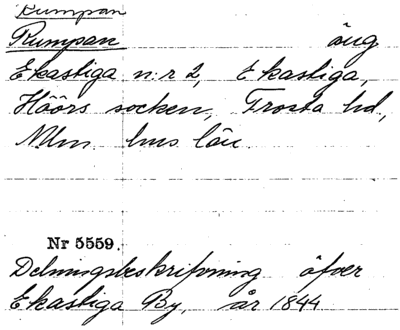 Rumpan
Rumpan äng
Ekastiga n:r 2, Ekastiga,
Höörs socken, Frosta hd,
Mlm. hus län.
Nr 5559.
Delningsbeskrifvning öfver
Ekastiga By, år 1844